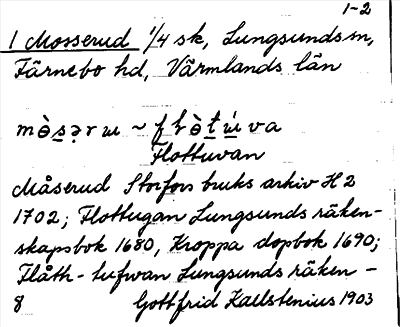 1-2
1 Mosserud 1/4 sk, Lungsunds sn,
Färnebo hd, Värmlands län
Flottuvan
Måserud Storfors bruks arkiv H 2
1702; Flottugan Lungsunds räken-
skapsbok 1680, Kroppa dopbok 1690;
Flåth-tufwan Lungsunds räken-
8 Gottfrid Kallstenius 1903